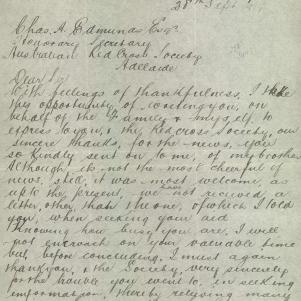 28th Sept
Chas. A. Edmunds Esq.
Honorary Secretary
Australian Red Cross Society
Adelaide
Dear Sir
With feelings of thankfulness, I take
this opportunity, of writing you, on
behalf of the Family & Myself, to
express to you, & the Red Cross Society, our
sincere thanks, for the news, you
so kindly sent on to me, of my brother
Although, is not the most cheerful of
news, still it was most welcome as
up to the present, we have not received a
letter, other than the one, of which I told
you, when seeking your aid
Knowing how busy, you are, I will
not encroach on your valuable time
but, before concluding, I must again
thank you, & the Society, very sincerely
for the trouble you went to, in seeking
information, thereby relieving many